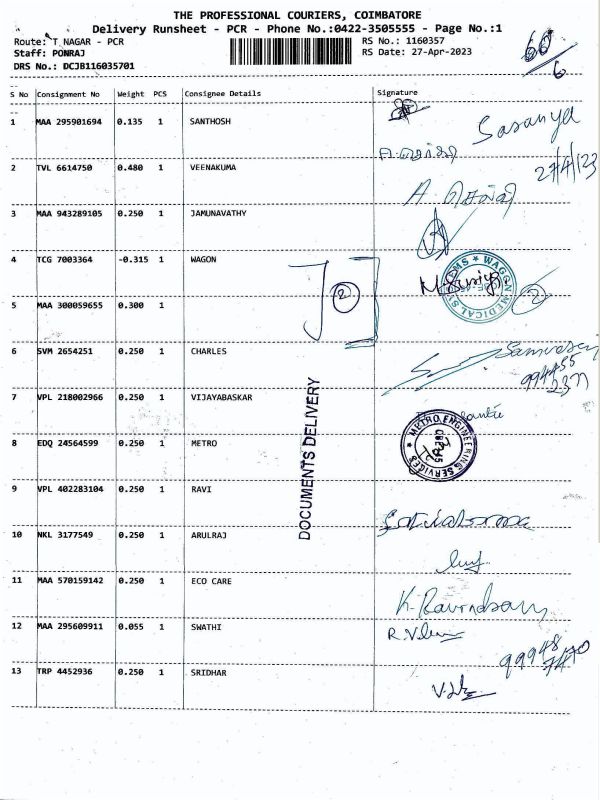 THE PROFESSIONAL COURIERS, COIMBATORE
Delivery Runsheet - PCR - Phone No.:0422-3505555 - Page No.:1
Route: T NAGAR - PCR RS No.: 1160357
Staff: PONRAJ RS Date: 27-Apr-2023
DRS No.: DCJB116035701
60
6
S No Consignment No Weight PCS Consignee Details Signature
1 MAA 295901694 0.135 1 SANTHOSH
Saranya
27/4/23
2 TVL 6614750 0.480 1 VEENAKUMA
3 MAA 943289105 0.250 1 JAMUNAVATHY
4 TCG 7003364 -0.315 1 WAGON
WAGON MEDICAL SYSTEMS
2
2
5 MAA 300059655 0.300 1
6 SVM 2654251 0.250 1 CHARLES
7 VPL 218002966 0.250 1 VIJAYABASKAR
DOCUMENTS DELIVERY
8 EDQ 24564599 0.250 1 METRO
METRO ENGINEERING SERVICES
9 VPL 402283104 0.250 1 RAVI
10 NKL 3177549 0.250 1 ARULRAJ
11 MAA 570159142 0.250 1 ECO CARE
K. Ravindran
12 MAA 295609911 0.055 1 SWATHI
13 TRP 4452936 0.250 1 SRIDHAR
99948
7470